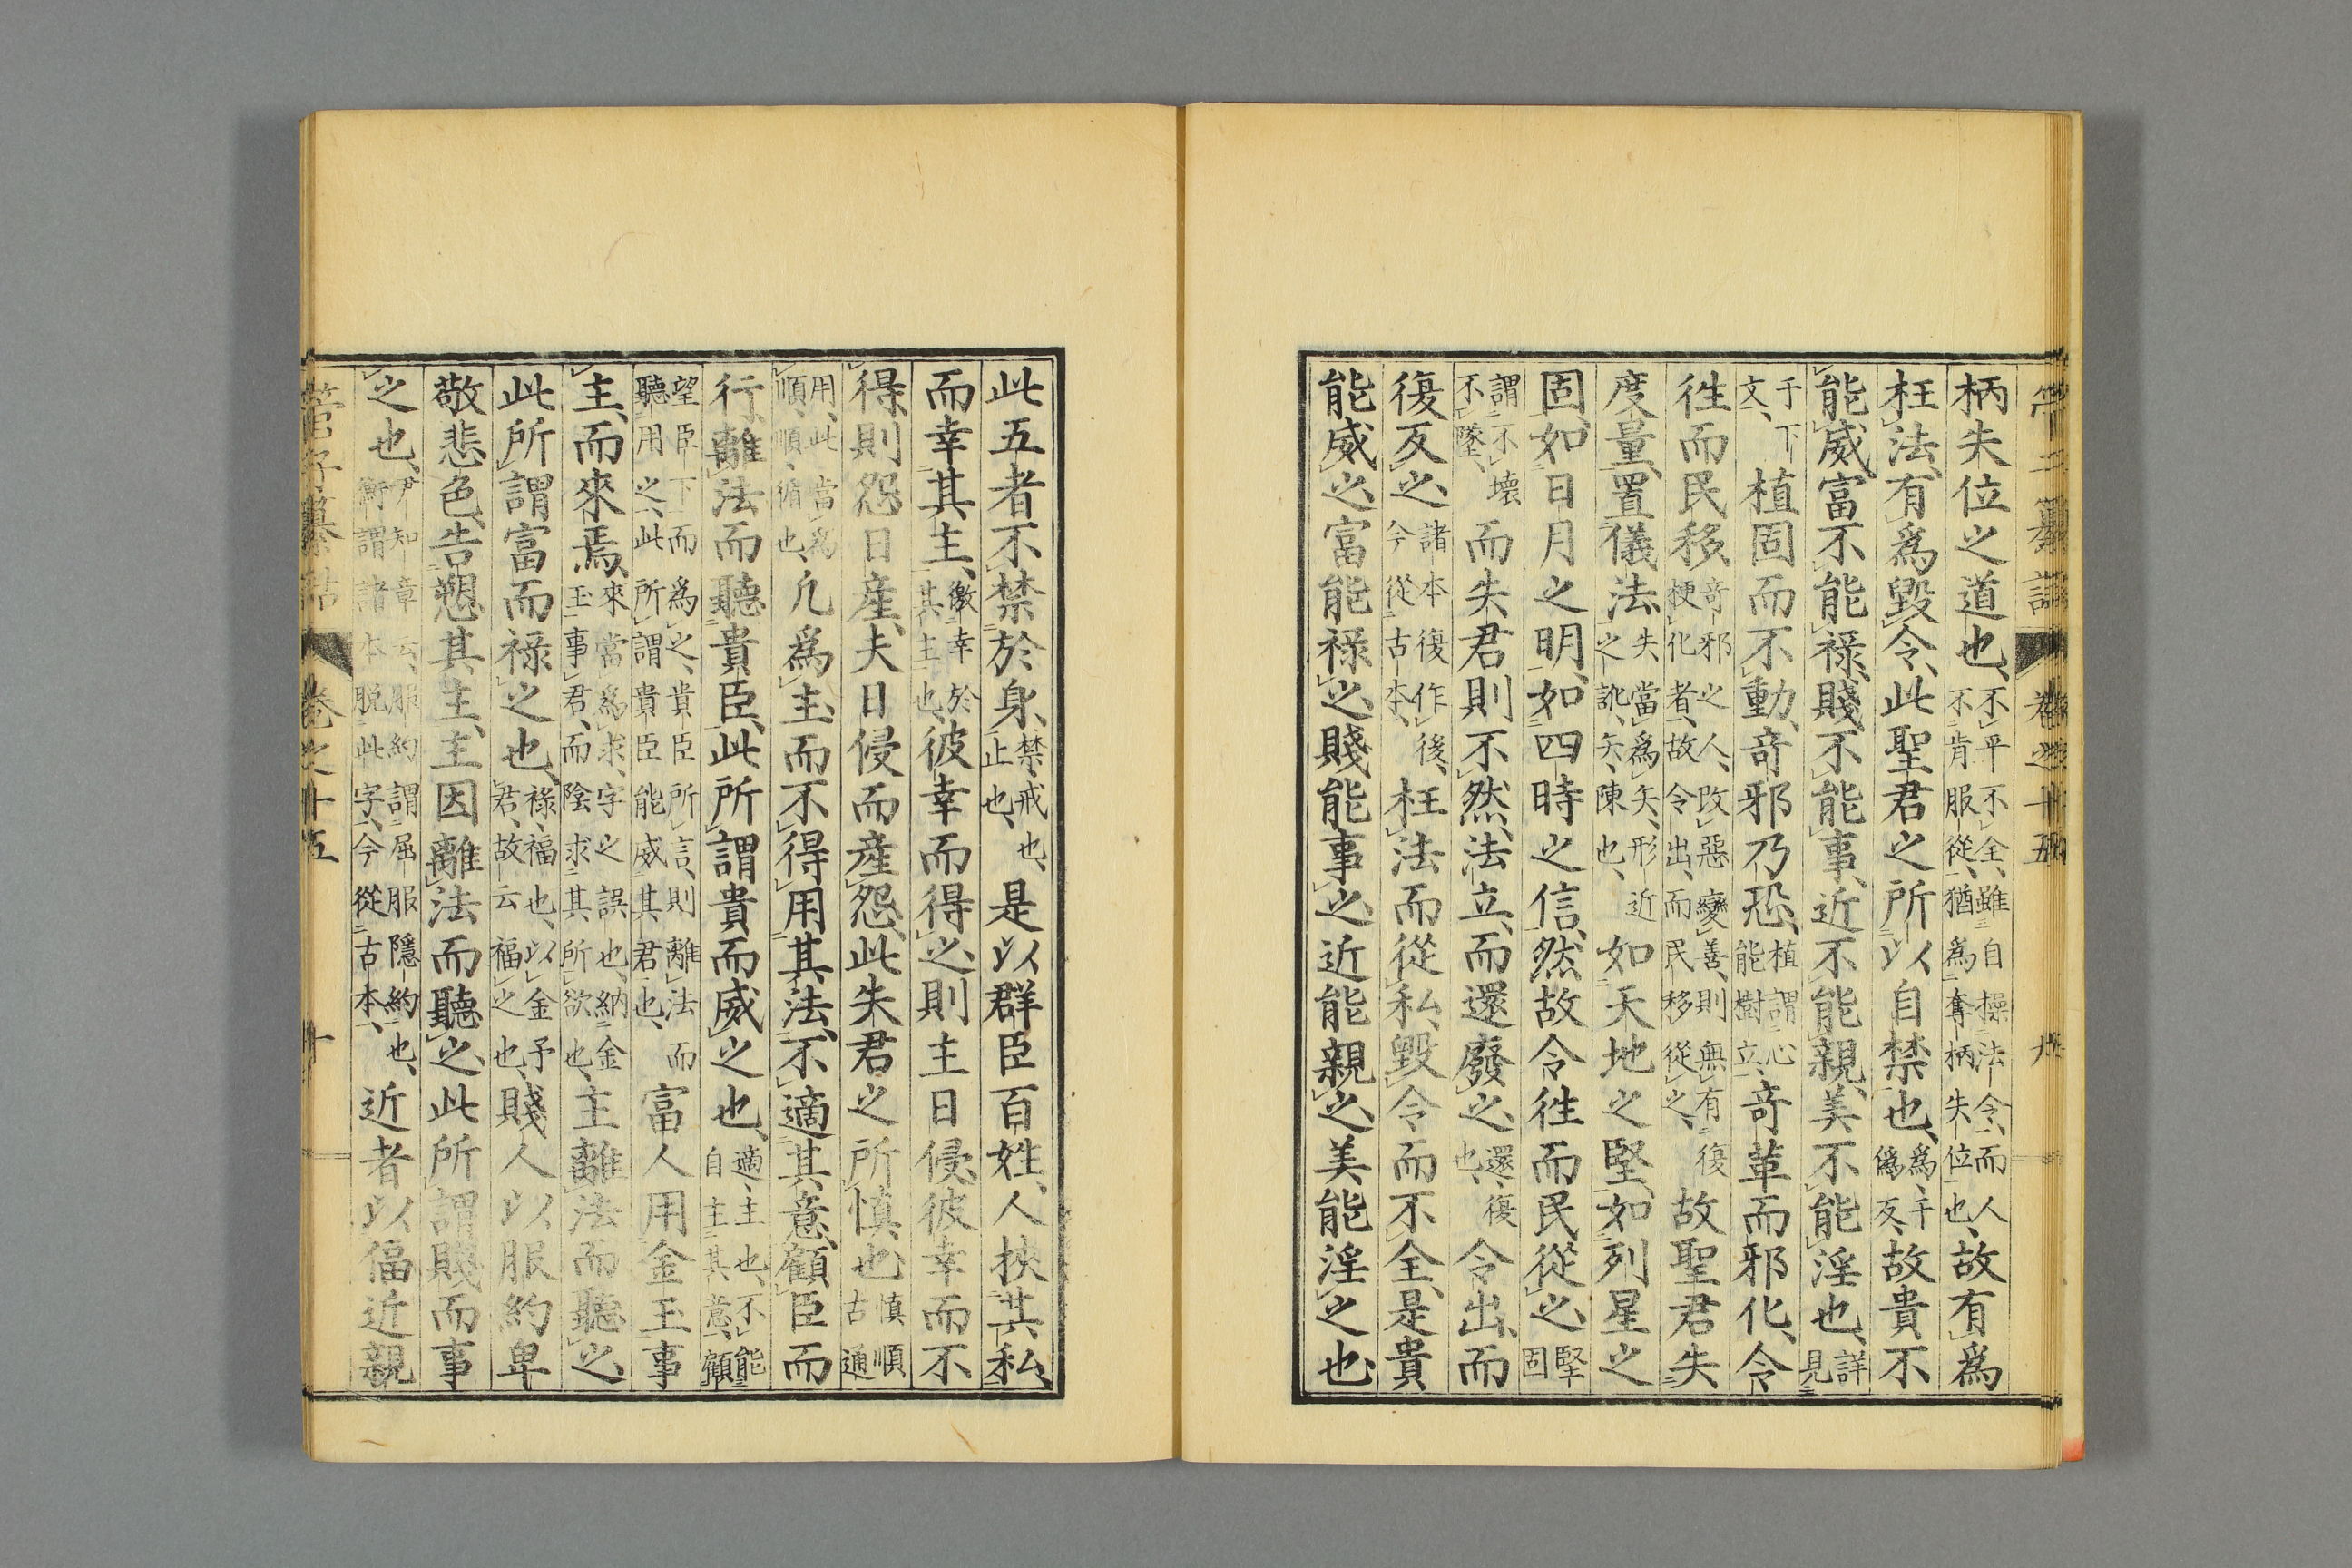 柄失位之道也、不平不全、雖自操法令、而人不肯服從、猶爲奪柄失位也、故有爲
枉法、有爲毀令、此聖君之所以自禁也、爲、于僞反、故貴不
能威、富不能祿、賤不能事、近不能親、美不能淫也、詳見
于下文、植固而不動、奇邪乃恐、植謂心能樹立、奇革而邪化、令
徃而民移、奇邪之人、改惡變善、則無有復梗化者、故令出、而民移從之、故聖君失
度量、置儀法、失當爲矢、形近之訛、矢、陳也、如天地之堅、如列星之
固、如日月之明、如四時之信、然故令徃而民從之、堅固
謂不壞不墜、而失君則不然、法立、而還廢之、還、復也、令出、而
復反之、諸本復作後、今從古本、枉法而從私、毀令而不全、是貴
能威之、富能祿之、賤能事之、近能親之、美能淫之也、
此五者不禁於身、禁、戒也、止也、是以群臣百姓、人挾其私、
而幸其主、徼幸於其主也、彼幸而得之、則主日侵、彼幸而不
得、則怨日産、夫日侵而産怨、此失君之所愼也、愼順古通
用、此當爲順、順、循也、凡爲主、而不得用其法、不適其意、顧臣而
行、離法而聽貴臣、此所謂貴而威之也、適、主也、不能自主其意、顧
望臣下而爲之、貴臣所言、則離法而聽用之、此所謂貴臣能威其君也、富人用金玉事
主、而來焉、來當爲求、字之誤也、納金玉事君、而陰求其所欲也、主離法而聽之、
此所謂富而祿之也、祿、福也、以金予君、故云福之也、賤人以服約卑
敬悲色、告愬其主、主因離法而聽之、此所謂賤而事
之也、尹知章云、服約謂屈服隱約也、衡謂諸本脱此字、今從古本、近者以偪近親